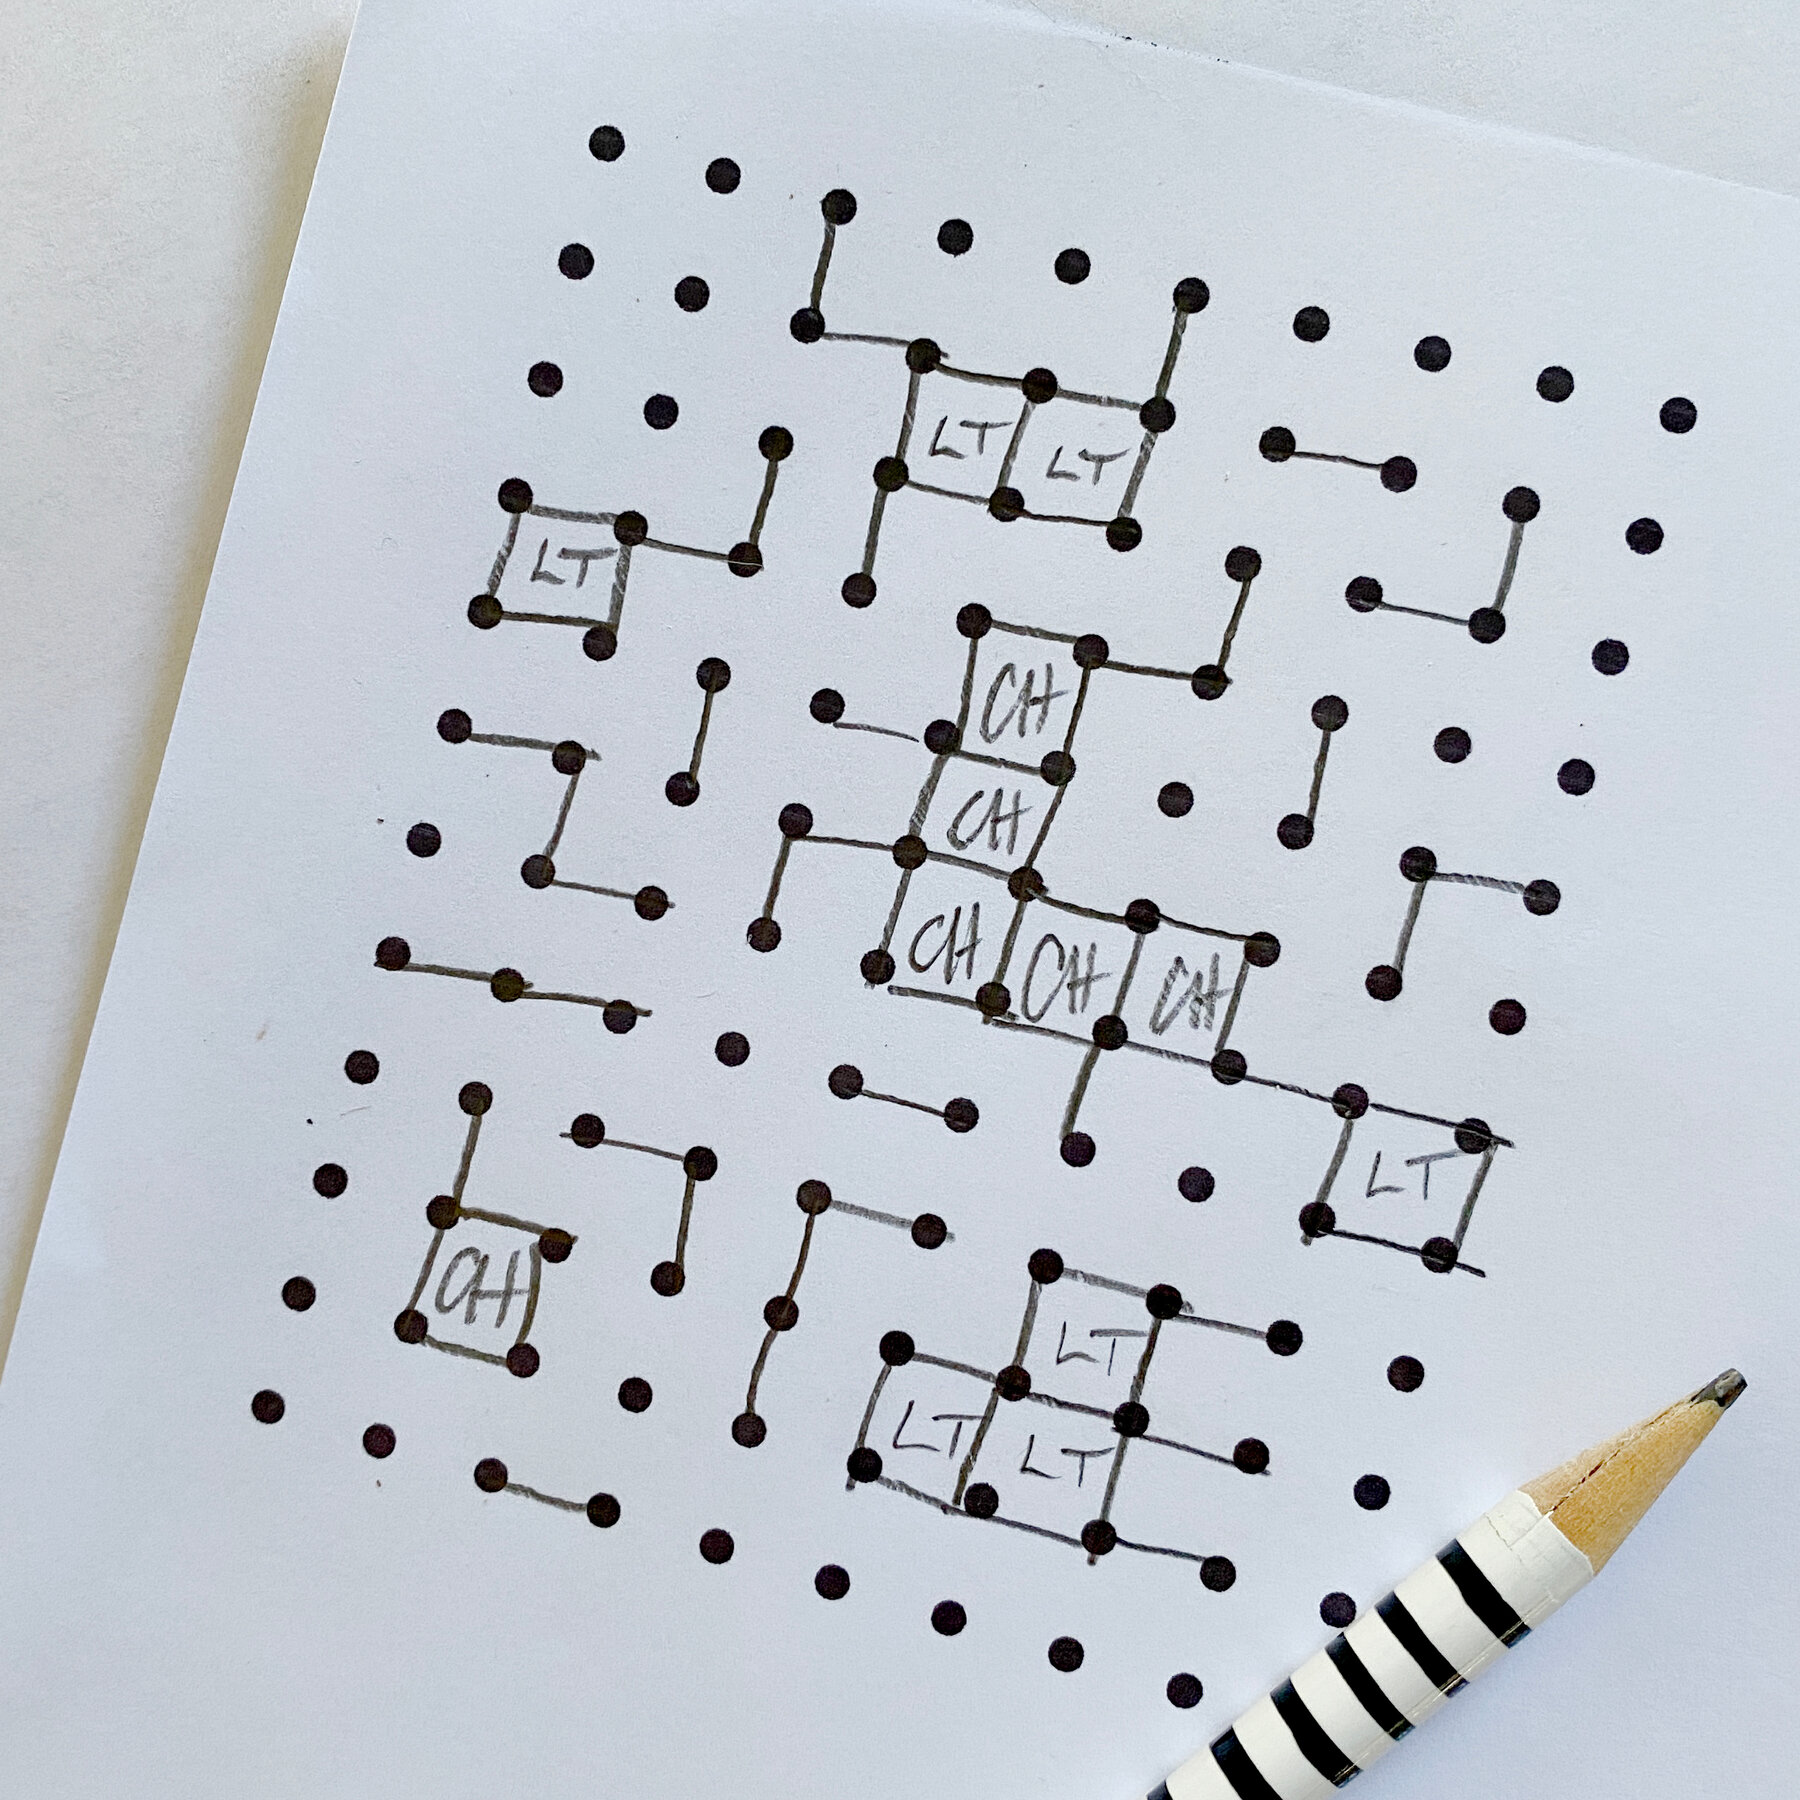 LT LT
LT
CH
CH
CH CH CH
LT
CH
LT
LT LT